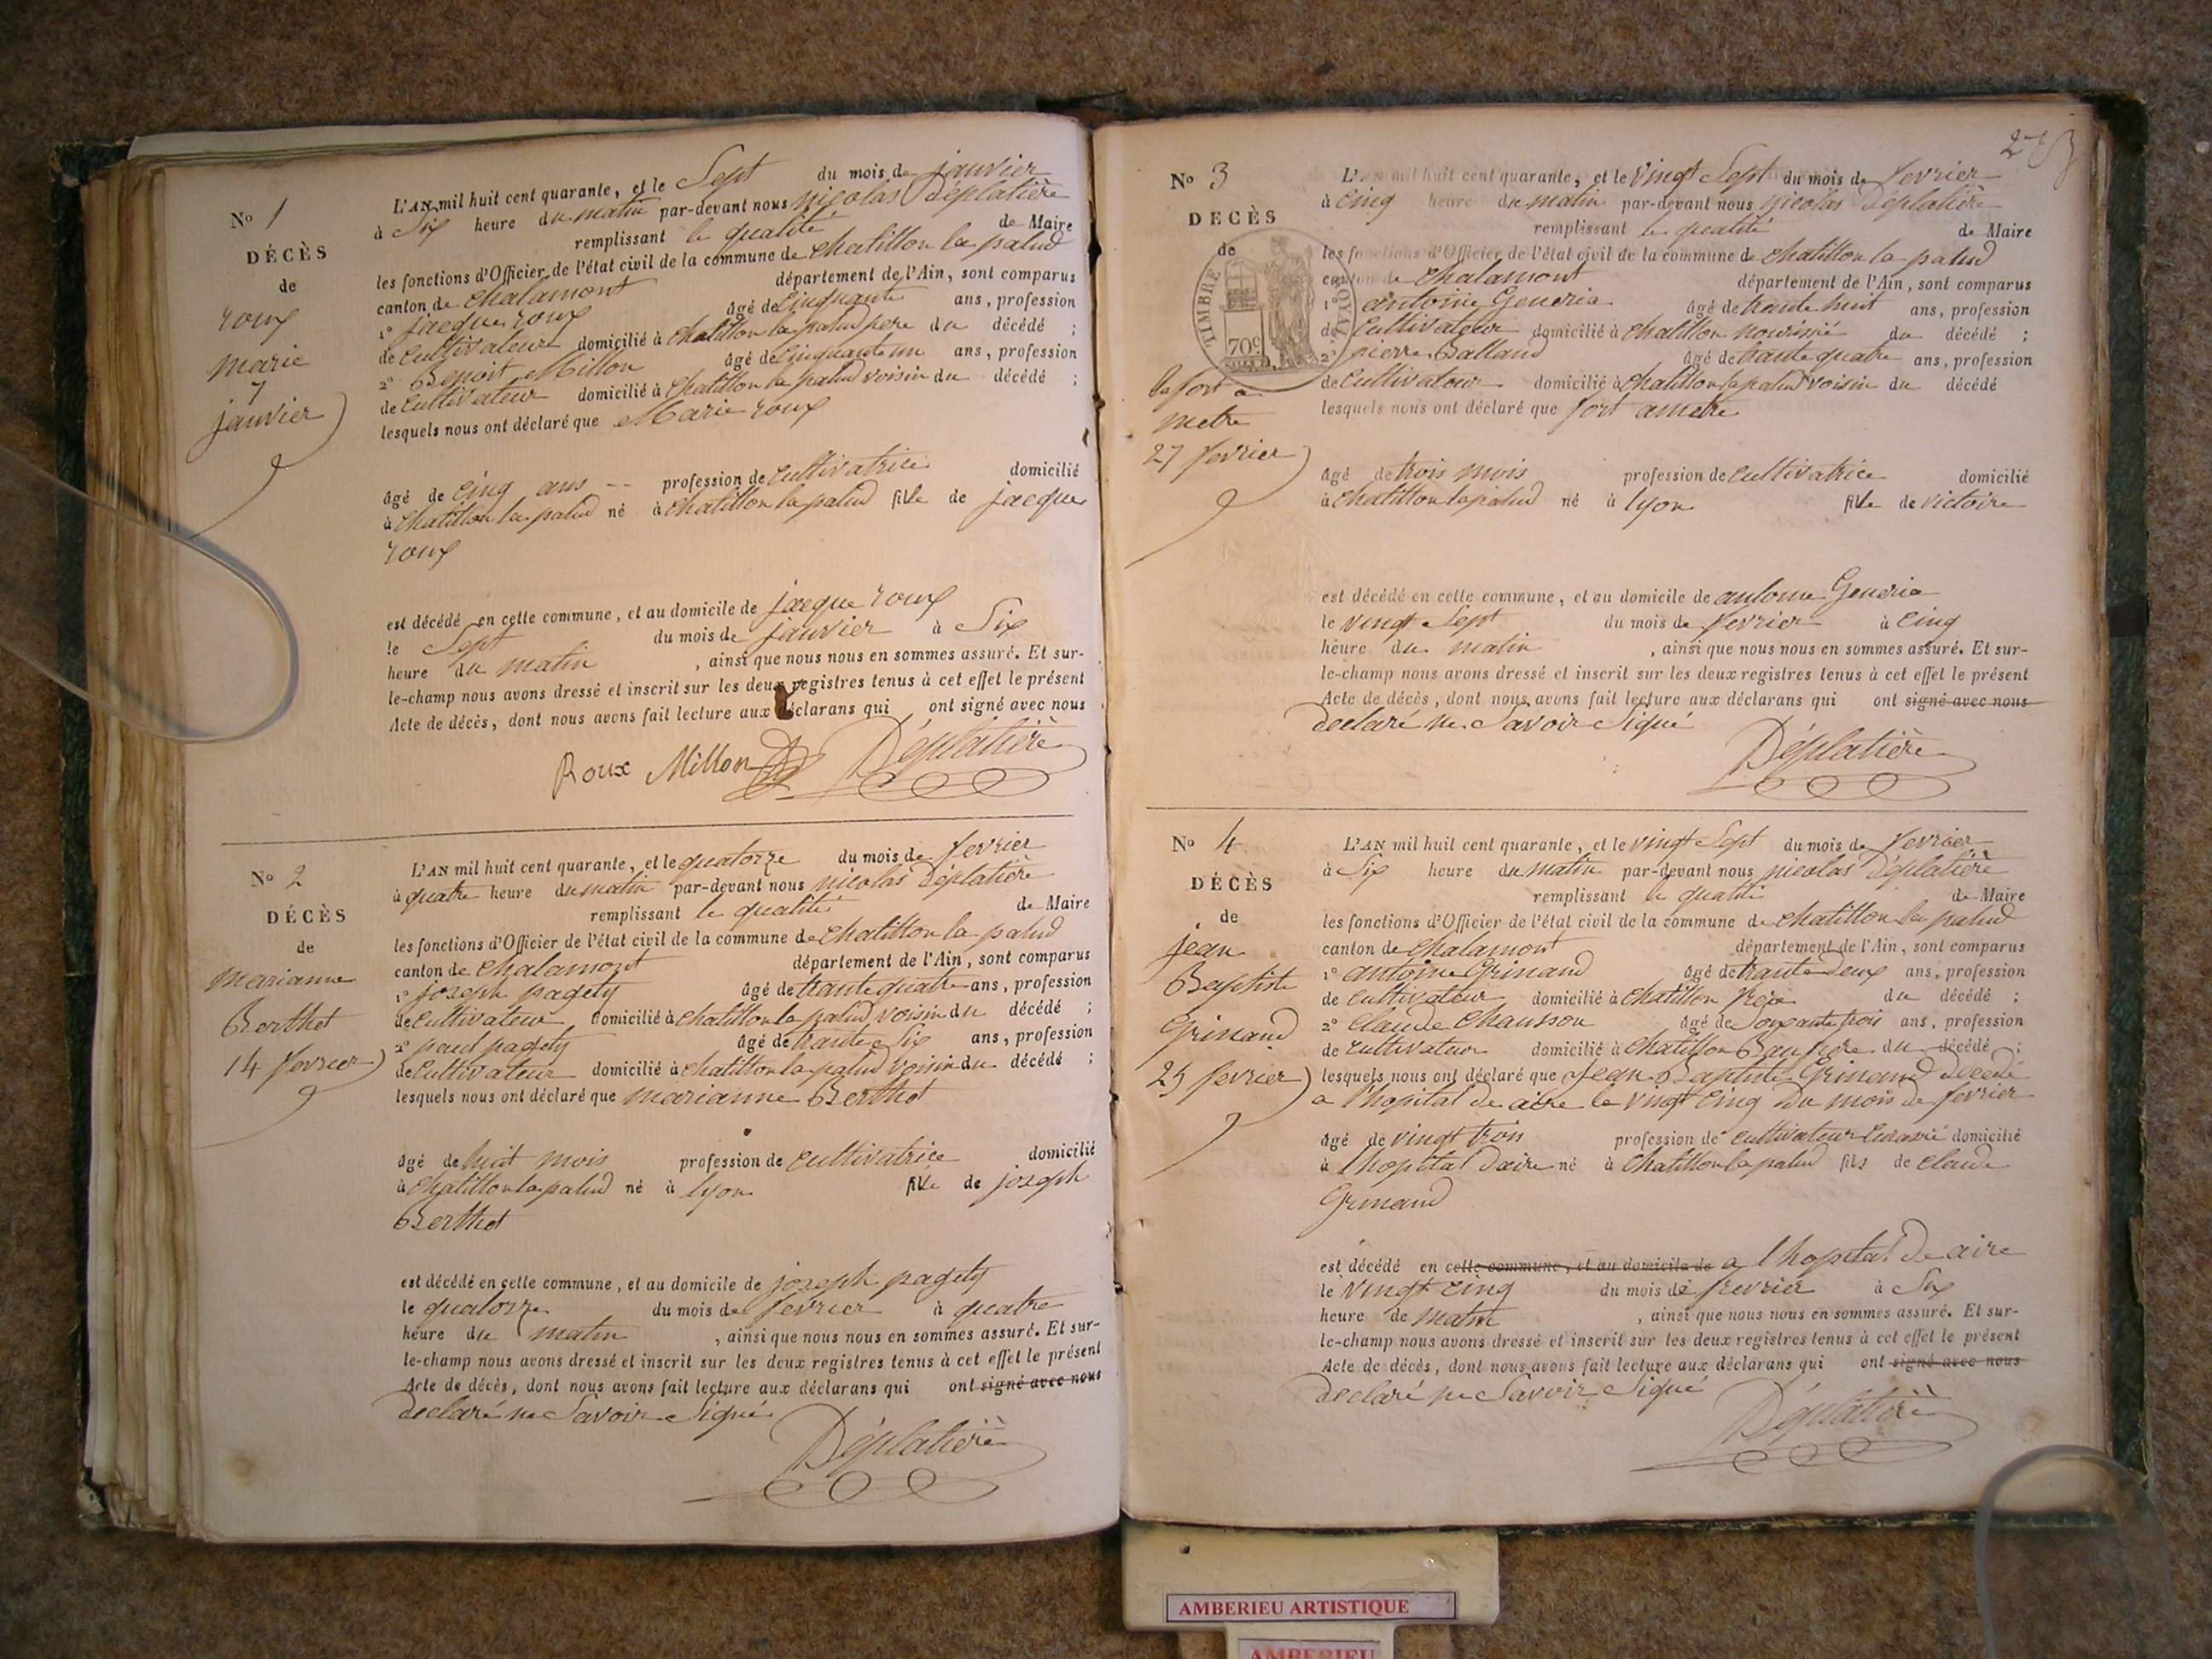 No 1
DÉCÈS
de
roux
marie
7
janvier
L'AN mil huit cent quarante, et le Sept du mois de janvier
à Six heure du matin par-devant nous nicolas Déplatière
remplissant le qualité de Maire
les fonctions d'Officier de l'état civil de la commune de chatillon la palud
canton de chalamont département de l'Ain, sont comparus
1° jacque roux âgé de Cinquante ans, profession
de Cultivateur domicilié à chatillon la palud pere du décédé ;
2° Benoit Millon âgé de Cinquante un ans, profession
de Cultivateur domicilié à chatillon la palud voisin du décédé ;
lesquels nous ont déclaré que Marie roux
âgé de Cinq ans -- profession de Cultivatrice domicilié
à chatillon la palud né à chatillon la palud fille de jacque
roux
est décédé en cette commune, et au domicile de jacque roux
le Sept du mois de janvier à Six
heure du matin , ainsi que nous nous en sommes assuré. Et sur-
le-champ nous avons dressé et inscrit sur les deux registres tenus à cet effet le présent
Acte de décès, dont nous avons fait lecture aux déclarans qui ont signé avec nous
Roux Millon Déplatière
No 2
DÉCÈS
de
marianne
Berthet
14 fevrier
L'AN mil huit cent quarante, et le quatorze du mois de fevrier
à quatre heure du matin par-devant nous nicolas Déplatière
remplissant le qualité de Maire
les fonctions d'Officier de l'état civil de la commune de chatillon la palud
canton de chalamont département de l'Ain, sont comparus
1° joseph pagety âgé de trante quatre ans, profession
de Cultivateur domicilié à chatillon la palud voisin du décédé ;
2° paul pagety âgé de trante Six ans, profession
de Cultivateur domicilié à chatillon la palud voisin du décédé ;
lesquels nous ont déclaré que marianne Berthet
âgé de huit mois profession de Cultivatrice domicilié
à chatillon la palud né à lyon fille de joseph
Berthet
est décédé en cette commune, et au domicile de joseph pagety
le quatorze du mois de fevrier à quatre
heure du matin , ainsi que nous nous en sommes assuré. Et sur-
le-champ nous avons dressé et inscrit sur les deux registres tenus à cet effet le présent
Acte de décès, dont nous avons fait lecture aux déclarans qui ont signé avec nous
declaré ne Savoir Signé
Déplatière
No 3
DECÈS
de
TIMBRE ROYAL
70c
fort a
metre
27 fevrier
L'AN mil huit cent quarante, et le vingt Sept du mois de fevrier
à Cinq heure du matin par-devant nous nicolas Déplatière
remplissant le qualité de Maire
les fonctions d'Officier de l'état civil de la commune de chatillon la palud
canton de chalamont département de l'Ain, sont comparus
1° antoine Gendria âgé de trante huit ans, profession
de Cultivateur domicilié à chatillon nourissié du décédé ;
2° pierre Balland âgé de trante quatre ans, profession
de Cultivateur domicilié à chatillon la palud voisin du décédé
lesquels nous ont déclaré que fort ametre
âgé de trois mois profession de Cultivatrice domicilié
à chatillon la palud né à lyon fille de victoire
est décédé en cette commune, et au domicile de antoine Gendria
le vingt Sept du mois de fevrier à Cinq
heure du matin , ainsi que nous nous en sommes assuré. Et sur-
le-champ nous avons dressé et inscrit sur les deux registres tenus à cet effet le présent
Acte de décès, dont nous avons fait lecture aux déclarans qui ont signé avec nous
declaré ne Savoir Signé
Déplatière
No 4
DÉCÈS
de
jean
Baptiste
Grinand
25 fevrier
L'AN mil huit cent quarante, et le vingt Sept du mois de fevrier
à Six heure du matin par-devant nous nicolas Déplatière
remplissant le qualité de Maire
les fonctions d'Officier de l'état civil de la commune de chatillon la palud
canton de chalamont département de l'Ain, sont comparus
1° antoine Grinand âgé de trante deux ans, profession
de Cultivateur domicilié à chatillon frere du décédé ;
2° Claude Chausson âgé de Soixante trois ans, profession
de Cultivateur domicilié à chatillon Beaupere du décédé ;
lesquels nous ont déclaré que Jean Baptiste Grinand décédé
a l'hopital de aire le vingt Cinq du mois de fevrier
âgé de vingt trois profession de Cultivateur domicilié
à l'hopital daire né à chatillon la palud fils de Claude
Grinand
est décédé en cette commune, et au domicile de a l'hopital de aire
le vingt Cinq du mois de fevrier à Six
heure de matin , ainsi que nous nous en sommes assuré. Et sur-
le-champ nous avons dressé et inscrit sur les deux registres tenus à cet effet le présent
Acte de décès, dont nous avons fait lecture aux déclarans qui ont signé avec nous
declaré ne Savoir Signé
Déplatière
AMBERIEU ARTISTIQUE
AMBERIEU